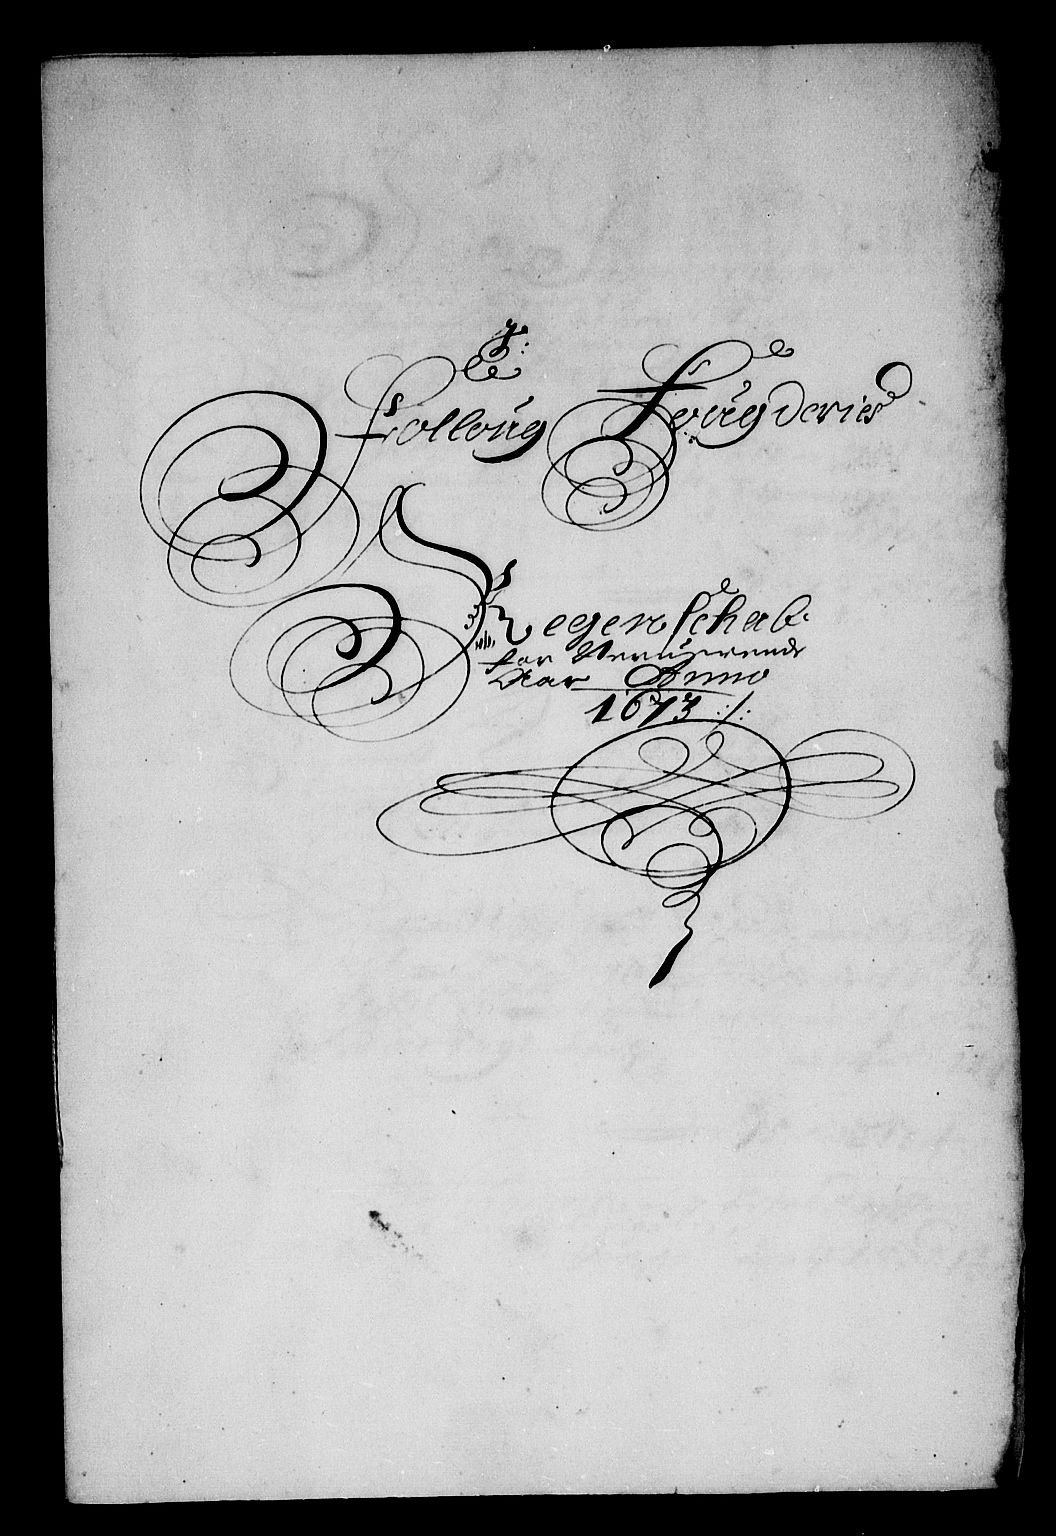 Folloug Fougderies
Regenschab
for Neruerende
Aar Anno
1673 ./.